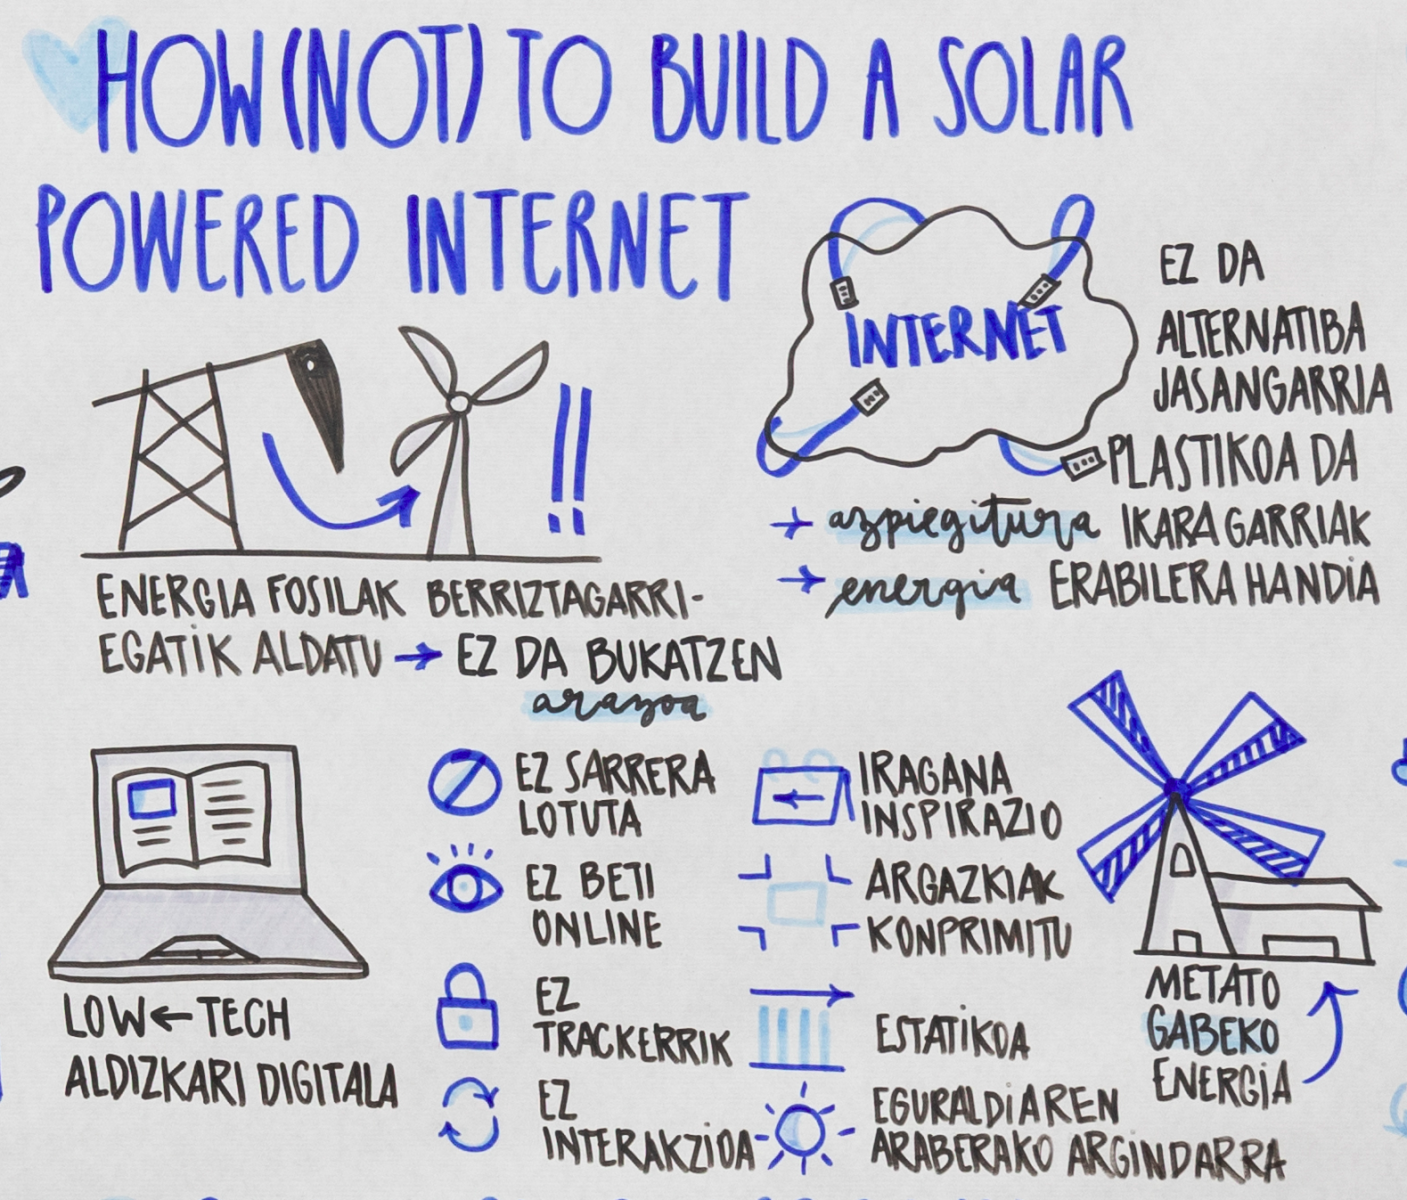 HOW (NOT) TO BUILD A SOLAR
POWERED INTERNET
INTERNET
EZ DA
ALTERNATIBA
JASANGARRIA
PLASTIKOA DA
→ azpiegitura IKARAGARRIAK
→ energia ERABILERA HANDIA
!!
ENERGIA FOSILAK BERRIZTAGARRI-
EGATIK ALDATU → EZ DA BUKATZEN
arazoa
LOW ← TECH
ALDIZKARI DIGITALA
EZ SARRERA
LOTUTA
EZ BETI
ONLINE
EZ
TRACKERRIK
EZ
INTERAKZIOA
IRAGANA
INSPIRAZIO
ARGAZKIAK
KONPRIMITU
ESTATIKOA
EGURALDIAREN
ARABERAKO ARGINDARRA
METATO
GABEKO
ENERGIA